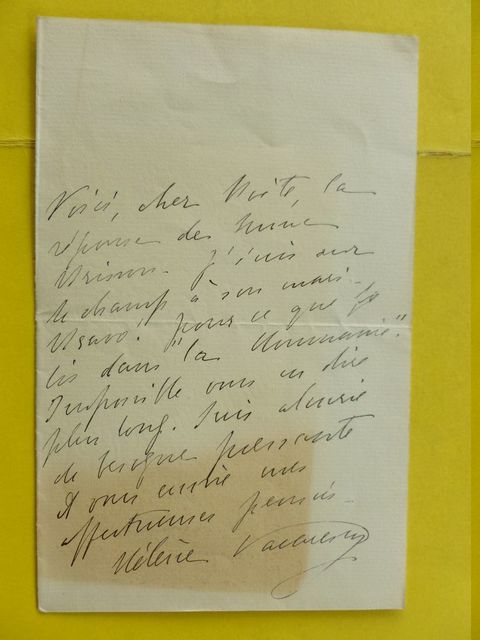 Voici, cher Poète, la
réponse de Mme
Brisson. J'écris sur
le champ à son mari.
Bravo! "pour ce que je
lis dans "la Roumanie".
Impossible vous en dire
plus long. Suis ahurie
de besogne pressante
et vous envoie mes
affectueuses pensées.
Hélène Vacaresco